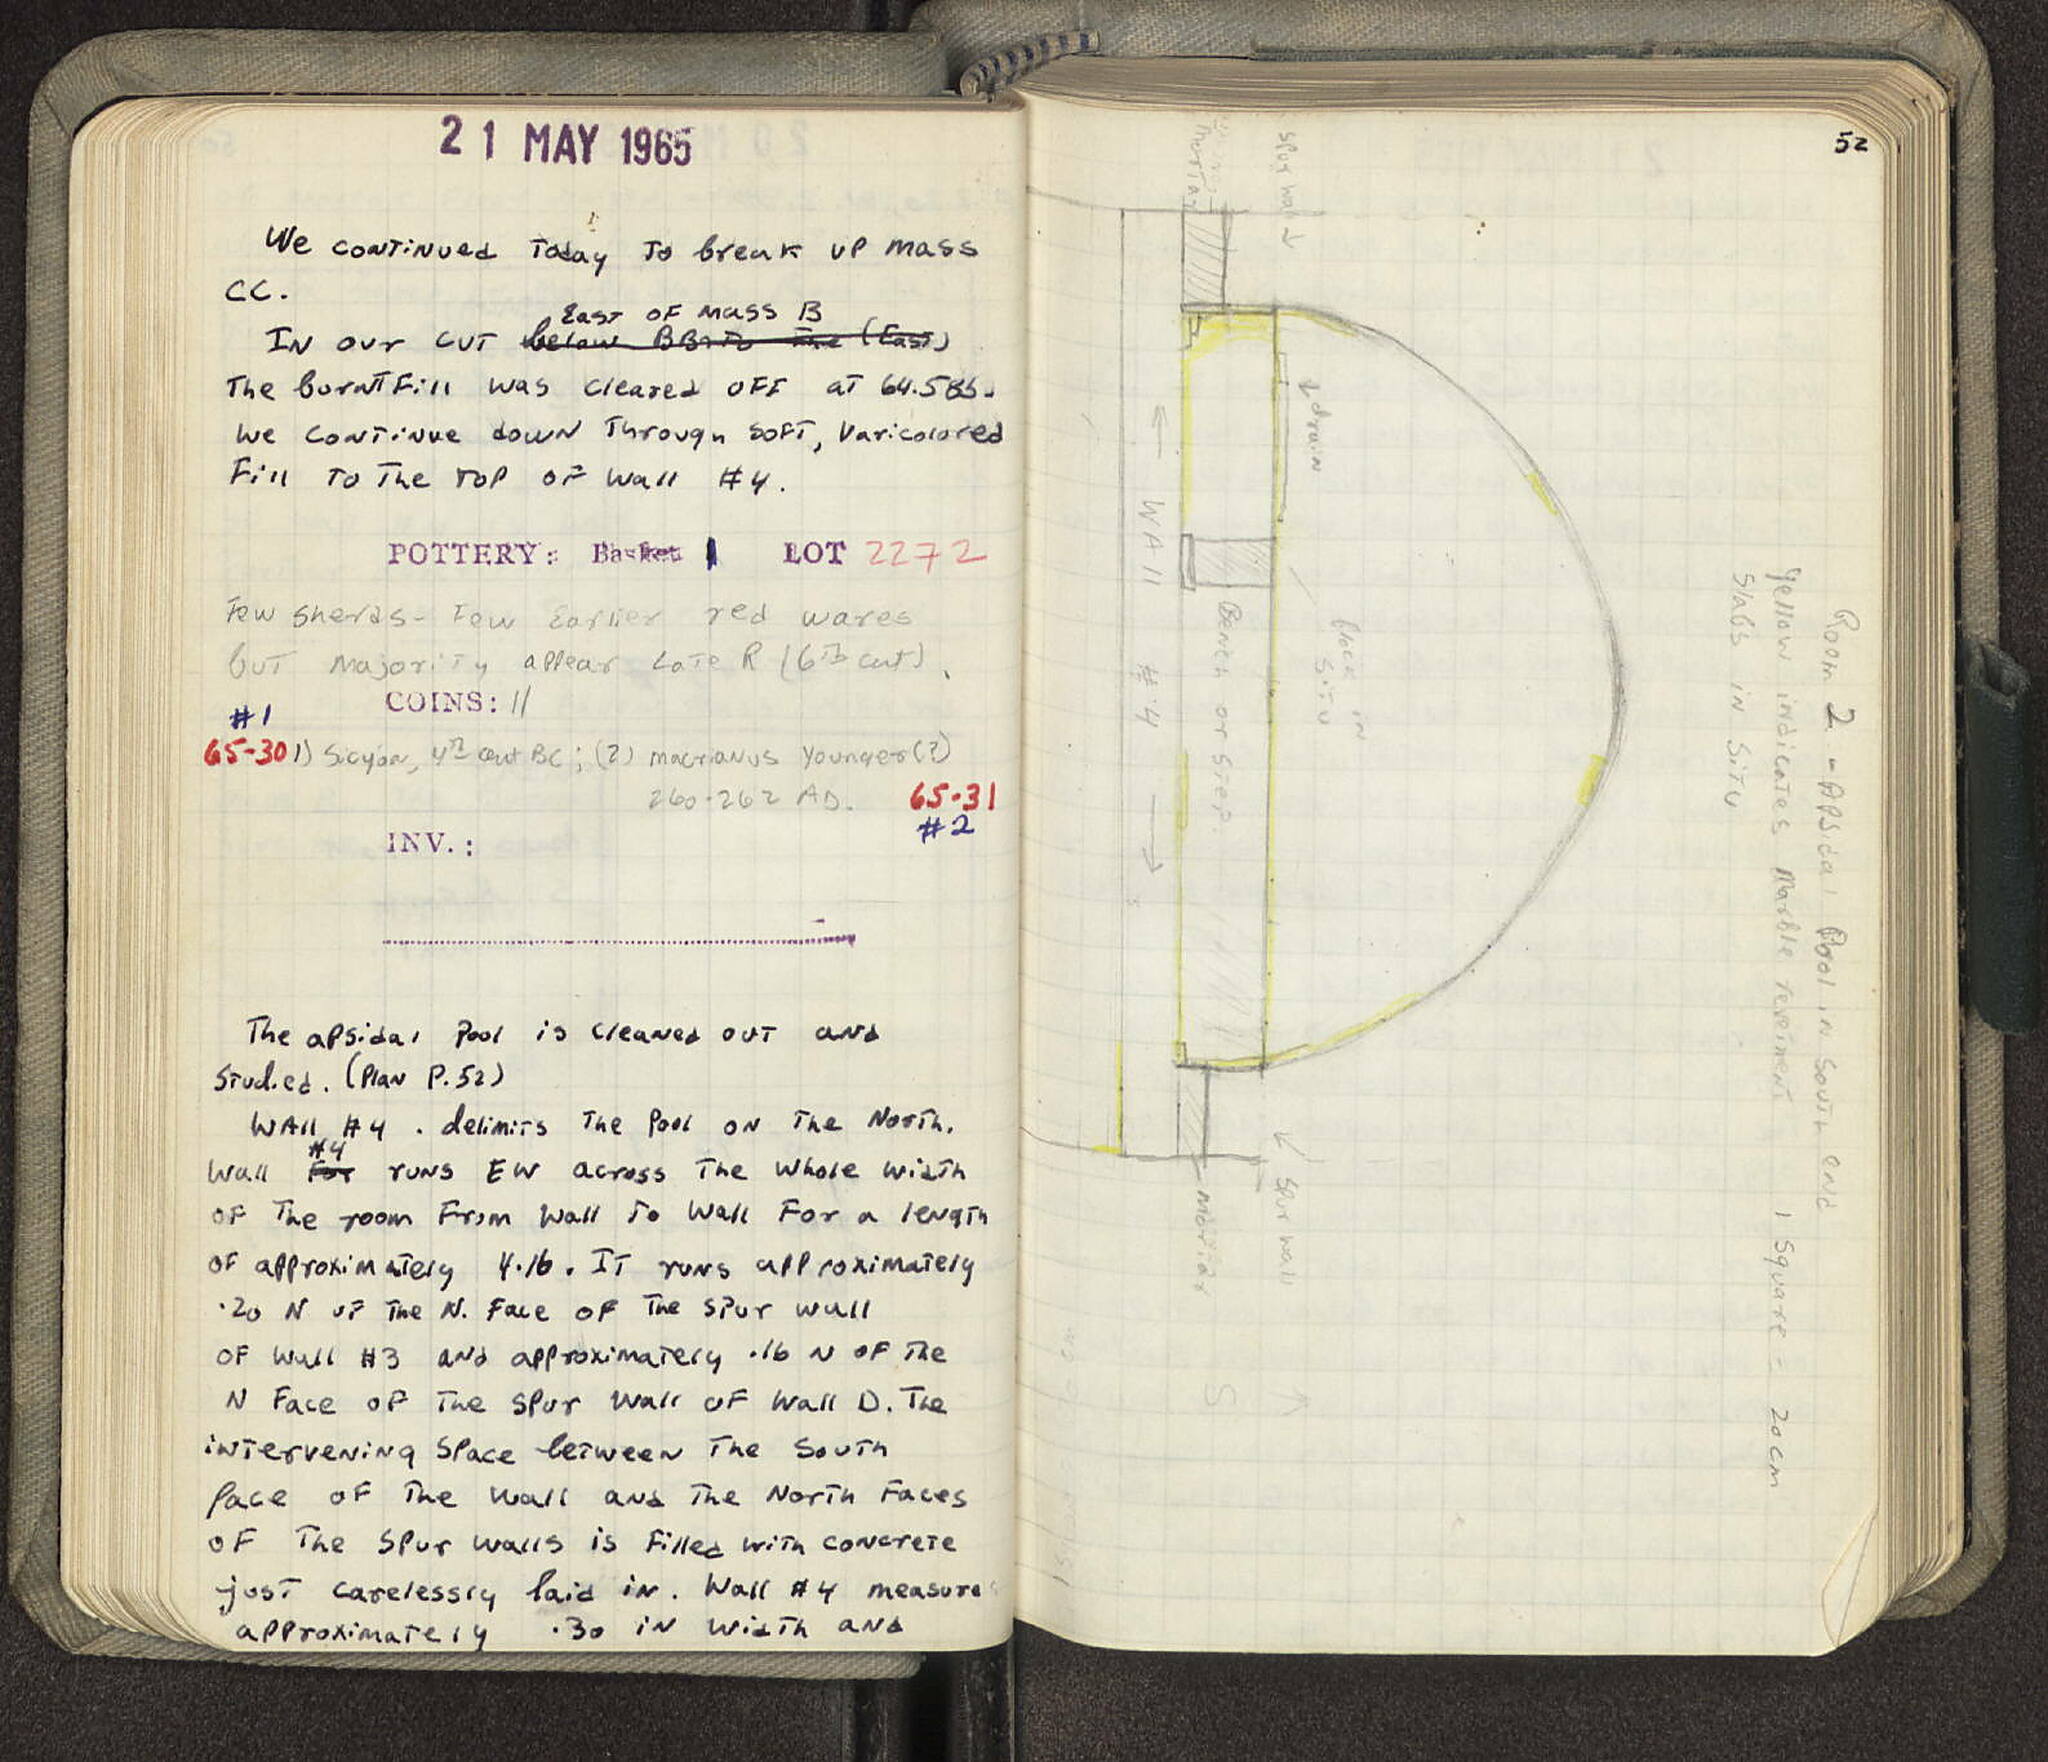 21 MAY 1965
We continued Today To break up Mass
CC.
East of Mass B
In our cut below BB to the (East)
The burnt Fill was cleared off at 64.585.
We continue down Through soft, varicolored
Fill To The Top of Wall #4.
POTTERY: Basket 1 LOT 2272
Few sherds - Few Earlier red wares
but Majority appear Late R (6th cent).
COINS: 11
#1
65-30 1) Sicyon, 4th cent BC; (2) Macrianus Younger(?)
260-262 AD. 65-31
#2
INV.:
The apsidal pool is cleaned out and
studied. (Plan P.52)
Wall #4. delimits The pool on The North.
#4
Wall For runs EW across The whole width
of The room From Wall To Wall For a length
of approximately 4.16. IT runs approximately
.20 N of The N. Face of The spur wall
of Wall #3 and approximately .16 N of The
N Face of The spur wall of Wall D. The
intervening space between The South
face of The Wall and The North Faces
of The spur walls is filled with concrete
just carelessly laid in. Wall #4 measures
approximately .30 in width and
52
Room 2 - Apsidal Pool in South end
Yellow indicates Marble revetment 1 square = 20 cm
slabs in situ
spur wall
mortar
drain
block in
situ
Wall #4
Bench or step.
spur wall
mortar
S